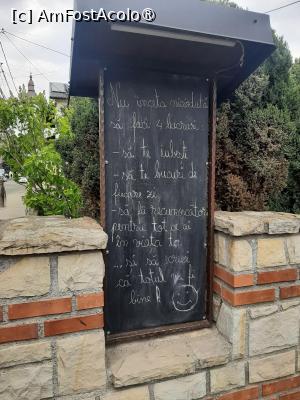 (c) AmFostAcolo®
Nu înceta niciodată
să faci 4 lucruri:
- să te iubești
- să te bucuri de
fiecare zi
- să fii recunoscător
pentru tot ce ai
în viața ta
- să crezi
că totul va fi
bine